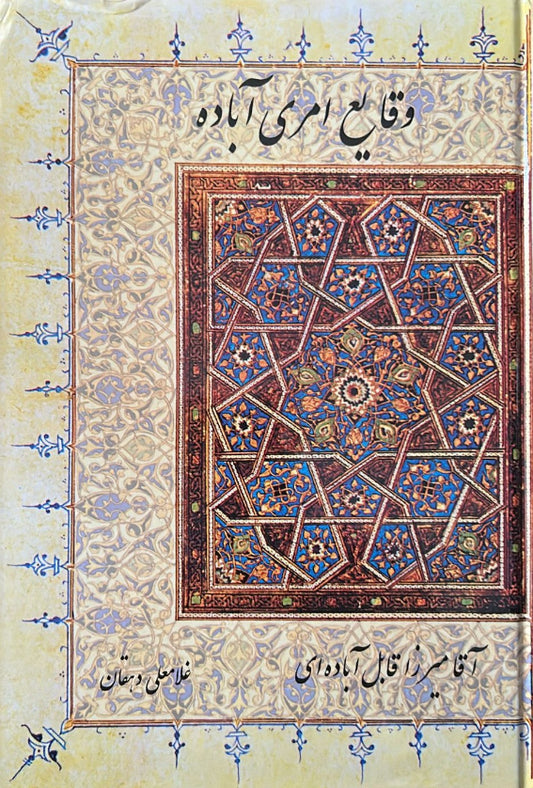 وقایع امری آباده
آقا میرزا قابل آباده‌ای
غلامعلی دهقان